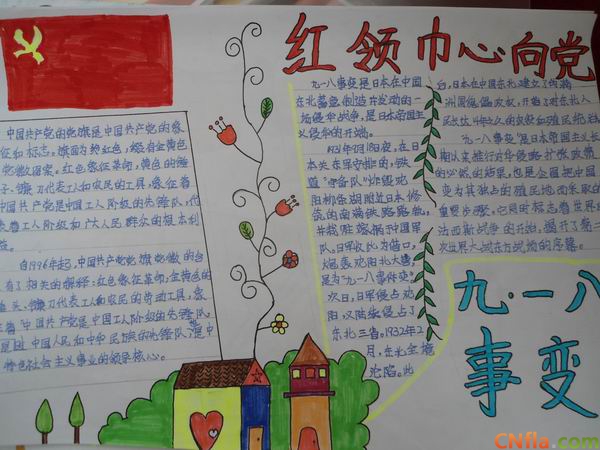 红领巾心向党
中国共产党的党旗是中国共产党的象
征和标志。旗面为鲜红色,缀有金黄色
党徽图案。红色象征革命,黄色的锤
子、镰刀代表工人和农民的工具,象征着
中国共产党是中国工人阶级的先锋队,代
表着工人阶级和广大人民群众的根本利
益。
自1996年起,中国共产党党旗党徽的含
有了相关的解释:红色象征革命;金黄色的
头、镰刀代表工人和农民的劳动工具,象
着中国共产党是中国工人阶级的先锋队,
是中国人民和中华民族的先锋队,是中
特色社会主义事业的领导核心。
九一八事变是日本在中国
东北蓄意制造并发动的一
场侵华战争,是日本帝国主
义侵华的开始。
1931年9月18日夜,在日
本关东军安排的,铁
道"守备队"炸毁沈
阳柳条湖附近日本修
筑的南满铁路路轨,
并栽赃嫁祸于中国军
队。日军以此为借口,
炮轰沈阳北大营,
是为"九一八事变"。
次日,日军侵占沈
阳,又陆续侵占了
东北三省。1932年2
月,东北全境
沦陷。此
后,日本在中国东北建立了伪满
洲国傀儡政权,开始了对东北人
民长达14年之久的奴役和殖民统治。
九一八事变是日本帝国主义长
期以来推行对华侵略扩张政策
的必然的结果,也是企图把中国
变为其独占的殖民地而采取的
重要步骤。它同时标志着世界反
法西斯战争的开始,揭开了第二
次世界大战东方战场的序幕。
九·一八
事变
CNfla.com